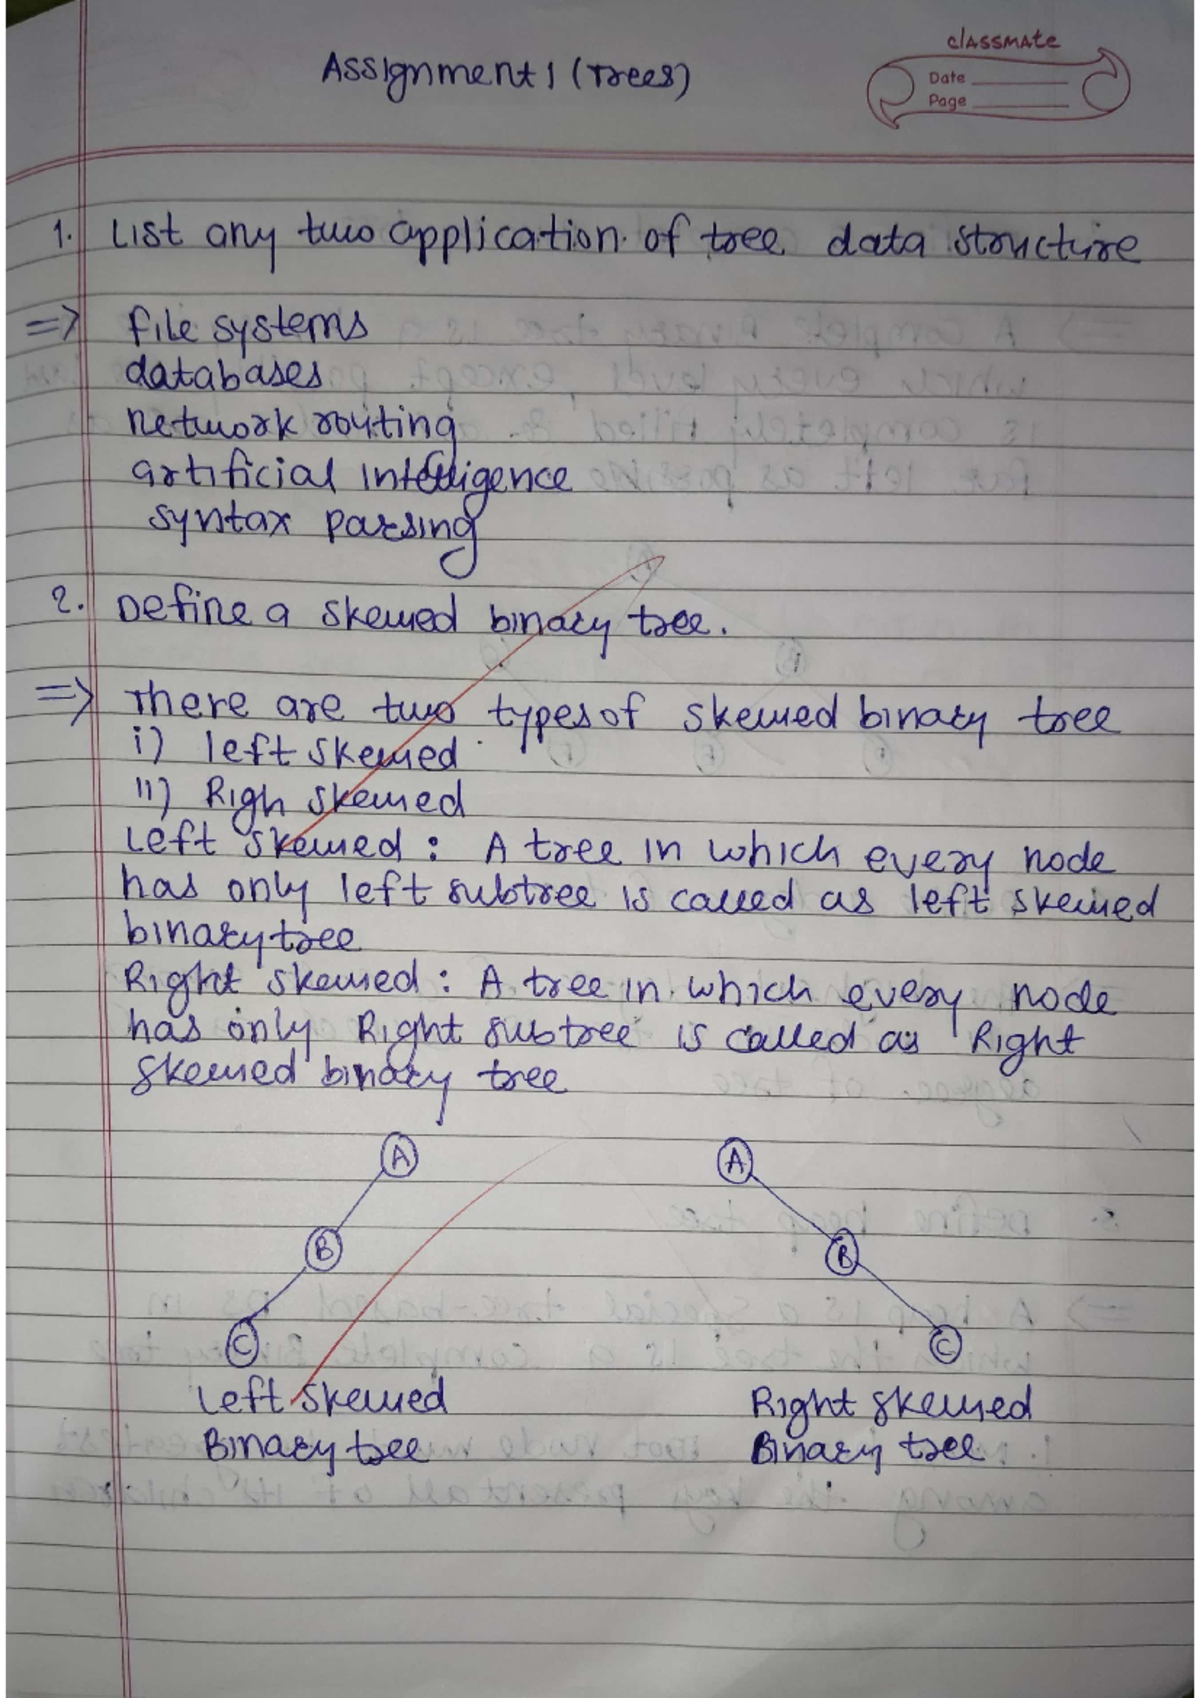 Assignment 1 (Trees)
classmate
Date
Page
1. List any two application of tree data structure
=> file systems
databases
network routing
artificial intelligence
syntax parsing
2. Define a skewed binary tree.
=> There are two types of skewed binary tree
i) left skewed
ii) Righ skewed
Left skewed : A tree in which every node
has only left subtree is called as left skewed
binary tree
Right skewed : A tree in which every node
has only Right subtree is called as Right
skewed binary tree
A A
B B
C C
Left skewed Right skewed
Binary tree Binary tree